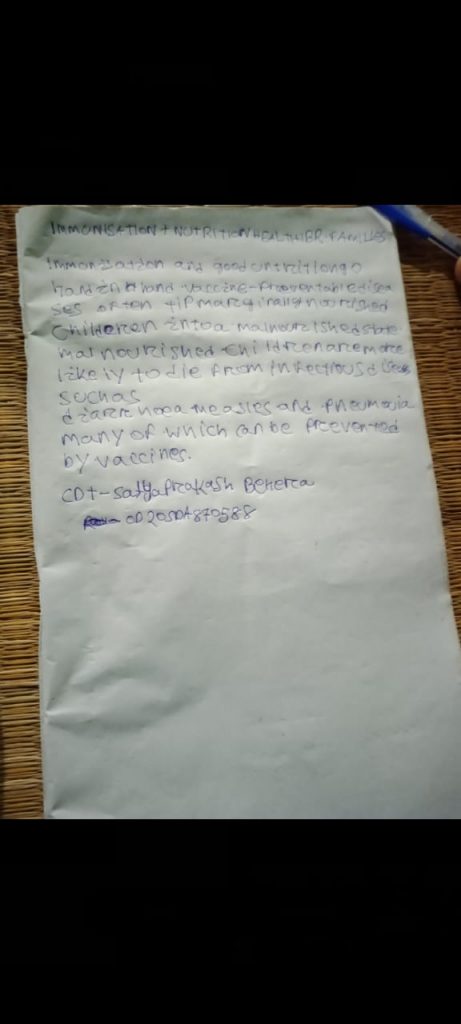 IMMUNISATION + NUTRITION HEALTHIER FAMILIES
Immunization and good untritiongo
hand in hand vaccine-Preventable disea
ses often tip marginally nourished
Children into a malnourished state
malnourished children are more
likely to die from infectious diseas
such as
diarrhoea measles and pneumonia
many of which can be prevented
by vaccines.
CDT-SatyaPrakash Behera
OD20SDA870588